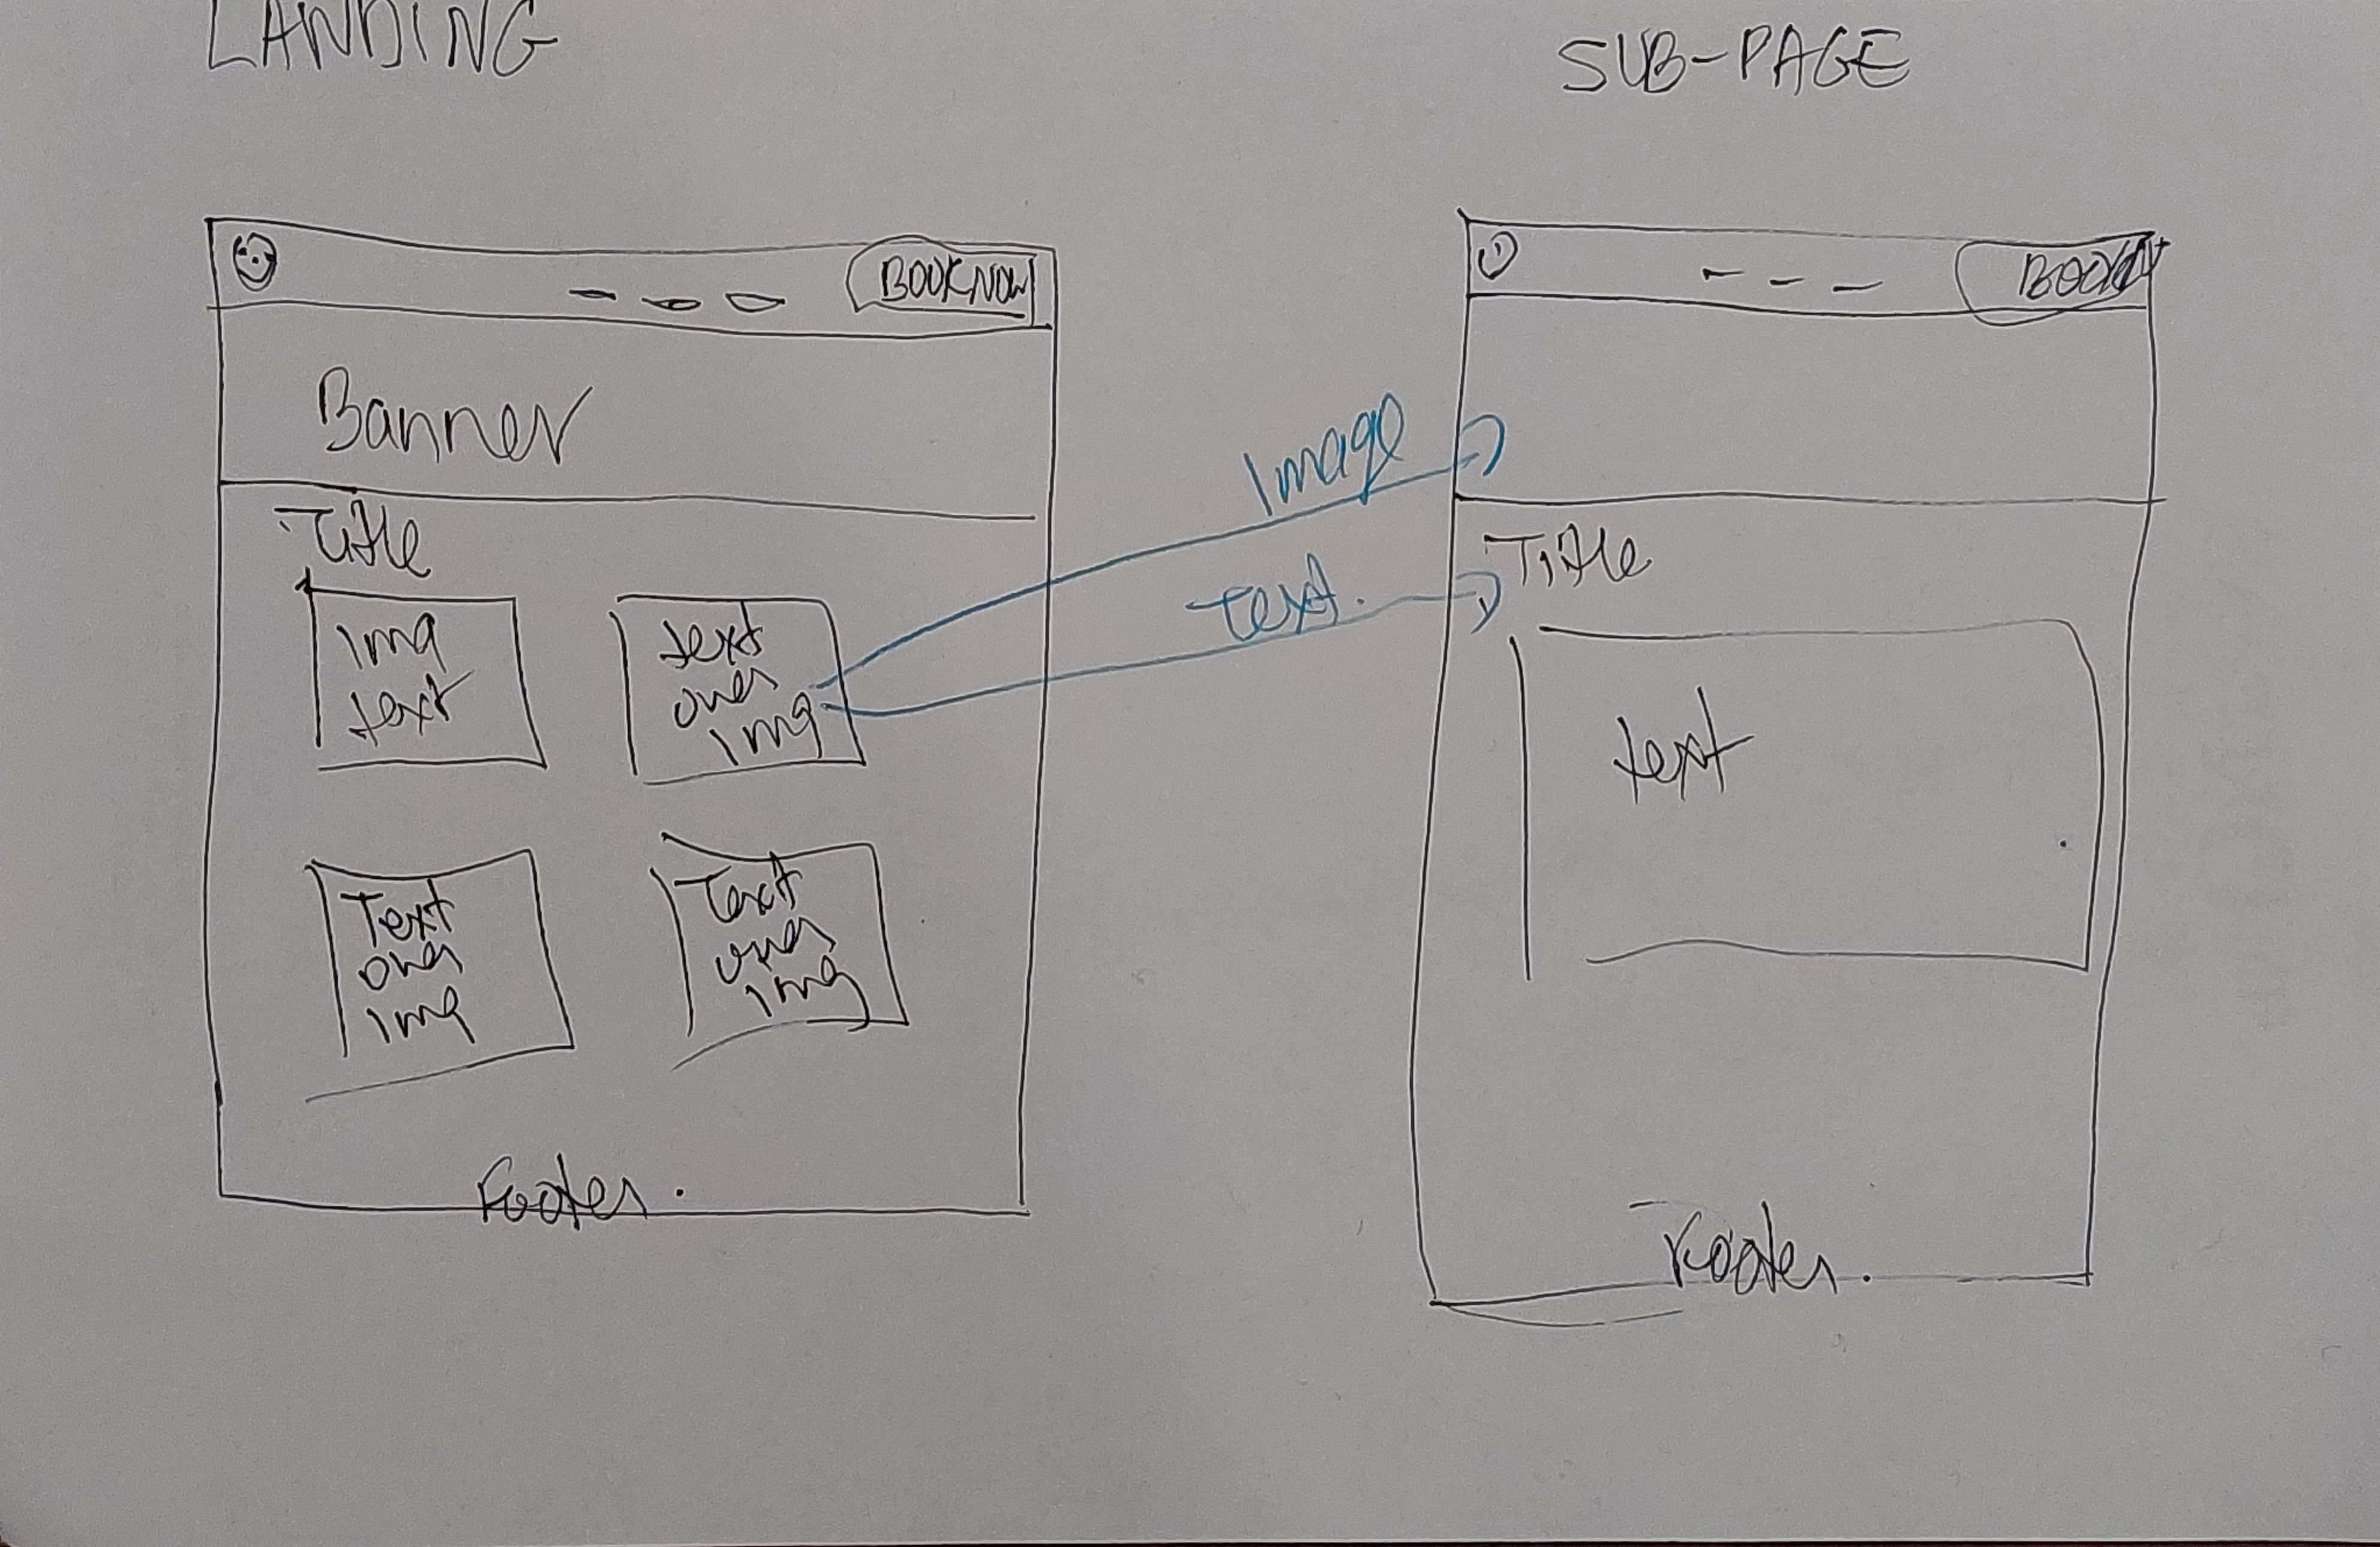 LANDING
SUB-PAGE
BOOKNOW
Banner
Title
img
text
text
over
img
Text
over
img
Text
over
img
Footer.
Image
Text.
Title
text
Footer.